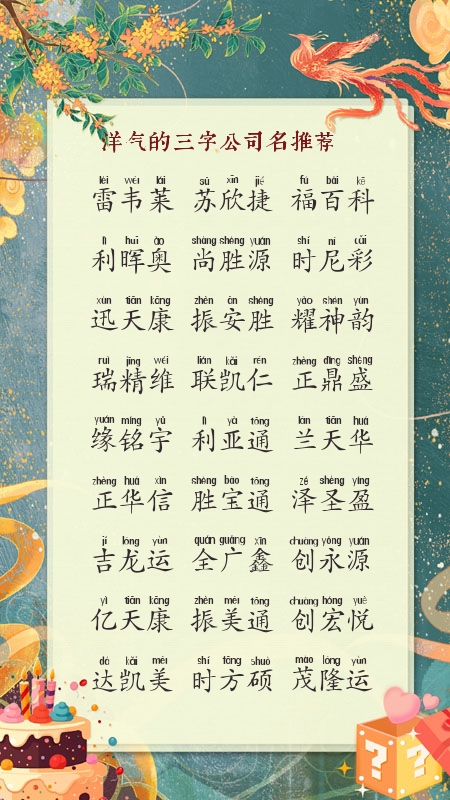 洋气的三字公司名推荐
léi wéi lái sū xīn jié fú bǎi kē
雷韦莱 苏欣捷 福百科
lì huī ào shàng shèng yuán shí ní cǎi
利晖奥 尚胜源 时尼彩
xùn tiān kāng zhèn ān shèng yào shén yùn
迅天康 振安胜 耀神韵
ruì jīng wéi lián kǎi rén zhèng dǐng shèng
瑞精维 联凯仁 正鼎盛
yuán míng yǔ lì yà tōng lán tiān huá
缘铭宇 利亚通 兰天华
zhèng huá xìn shèng bǎo tōng zé shèng yíng
正华信 胜宝通 泽圣盈
jí lóng yùn quán guǎng xīn chuàng yǒng yuán
吉龙运 全广鑫 创永源
yì tiān kāng zhèn měi tōng chuàng hóng yuè
亿天康 振美通 创宏悦
dá kǎi měi shí fāng shuò mào lóng yùn
达凯美 时方硕 茂隆运